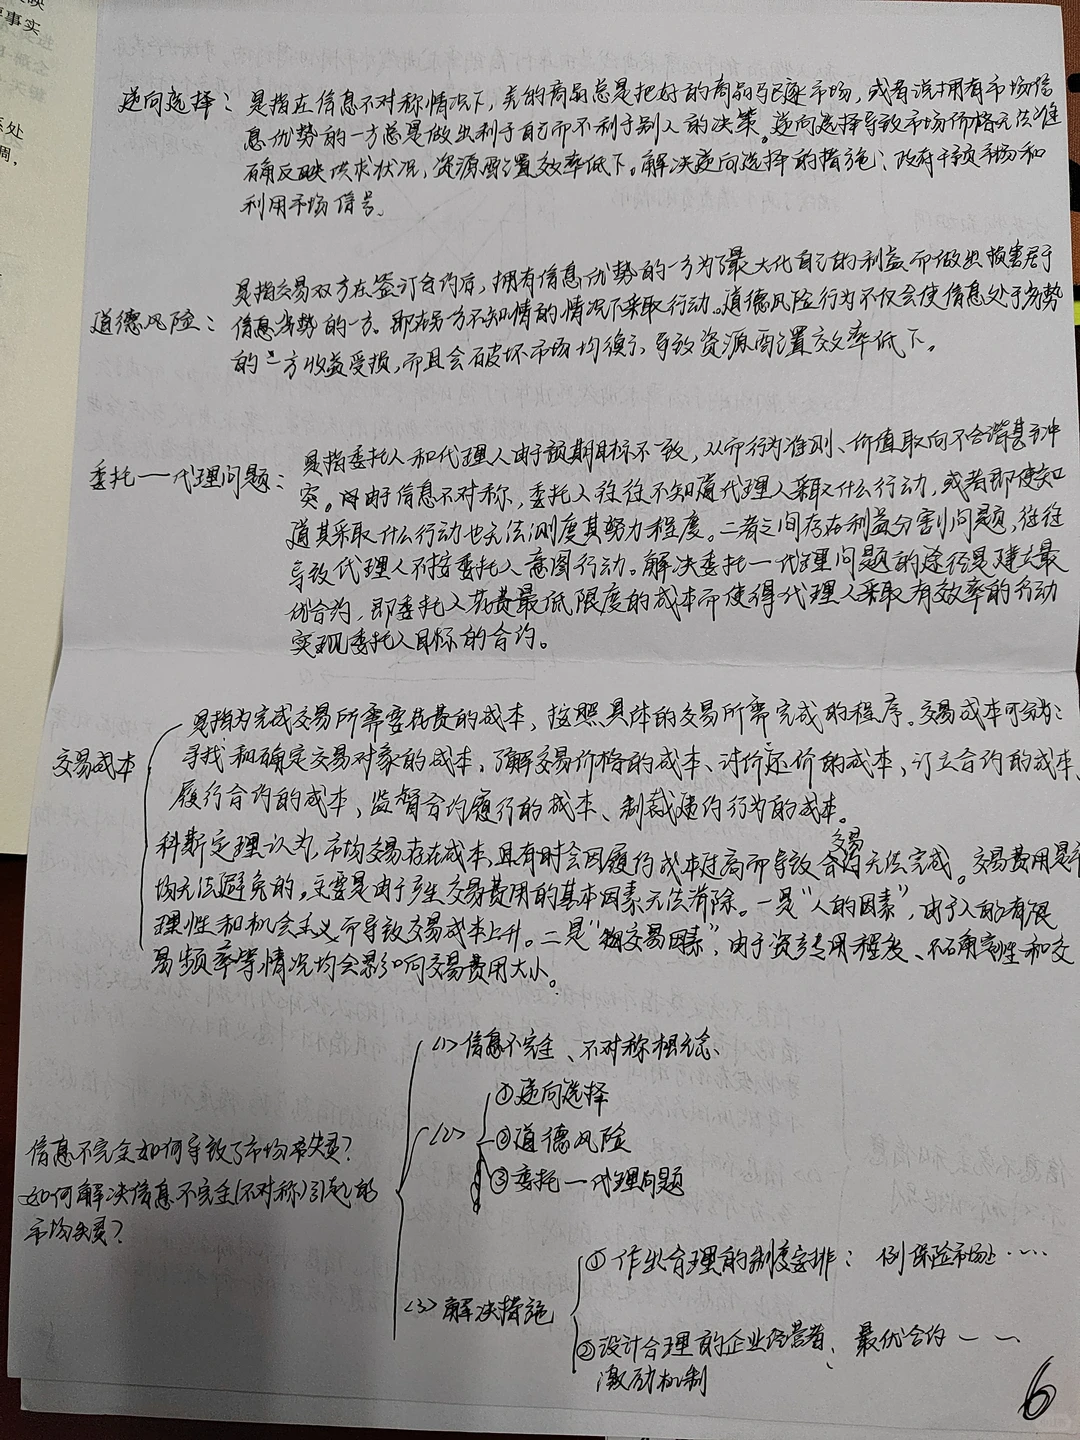 事实
逆向选择：是指在信息不对称情况下，卖的商品总是把好的商品驱逐市场，或者说拥有市场信
息优势的一方总是做出利于自己而不利于别人的决策。逆向选择导致市场价格无法准
确反映供求状况，资源配置效率低下。解决逆向选择的措施：政府干预市场和
利用市场信号。
是指交易双方在签订合约后，拥有信息优势的一方为了最大化自己的利益而做出损害居于
道德风险：信息劣势的一方。即在另一方不知情的情况下采取行动。道德风险行为不仅会使信息处于劣势
的一方收益受损，而且会破坏市场均衡，导致资源配置效率低下。
委托一代理问题：是指委托人和代理人由于预期目标不一致，从而行为准则、价值取向不合谐甚至冲
突。由于信息不对称，委托人往往不知道代理人采取什么行动，或者即使知
道其采取什么行动也无法测度其努力程度。二者之间存在利益分割问题，往往
导致代理人不按委托人意图行动。解决委托一代理问题的途径是建立最
优合约，即委托人花费最低限度的成本而使得代理人采取有效率的行动
实现委托人目标的合约。
是指为完成交易所需要花费的成本，按照具体的交易所需完成的程序。交易成本可分为：
交易成本 寻找和确定交易对象的成本，了解交易价格的成本、讨价还价的成本，订立合约的成本、
履行合约的成本，监督合约履行的成本、制裁违约行为的成本。
科斯定理认为，市场交易存在成本，且有时会因履行成本过高而导致交易无法完成。交易费用是市
场无法避免的。主要是由于产生交易费用的基本因素无法消除。一是“人的因素”，由于人的有限
理性和机会主义而导致交易成本上升。二是“交易因素”，由于资产专用程度、不确定性和交
易频率等情况均会影响交易费用大小。
(1) 信息不完全、不对称概念
(2) ①逆向选择
②道德风险
③委托一代理问题
信息不完全如何导致了市场失灵？
如何解决信息不完全(不对称)引起的
市场失灵？
(3) 解决措施
①作出合理的制度安排：例保险市场上……
②设计合理的企业经营者、最优合约——
激励机制
6